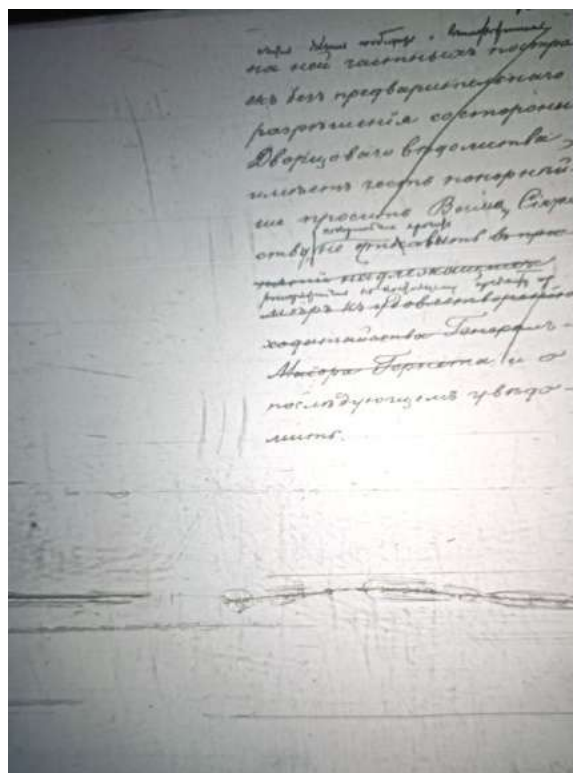 на ней частныхъ построй
екъ безъ предварительнаго
разрѣшенія со стороны
Дворцоваго вѣдомства,
имѣетъ честь покорнѣй-
ше просить Ваше Сіяте
ство не отказать въ при
нятіи надлежащихъ
мѣръ къ удовлетворенію
ходатайства Генералъ-
Маіора Гернета и о
послѣдующемъ увѣдо-
мить.